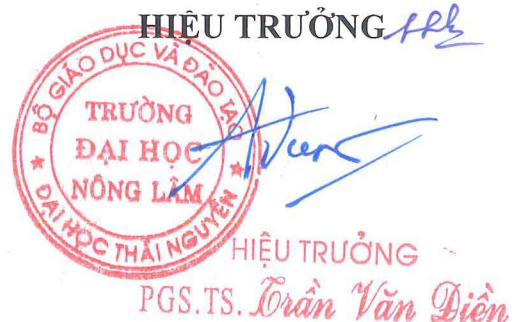 HIỆU TRƯỞNG
BỘ GIÁO DỤC VÀ ĐÀO TẠO
TRƯỜNG
ĐẠI HỌC
NÔNG LÂM
ĐẠI HỌC THÁI NGUYÊN
HIỆU TRƯỞNG
PGS.TS. Trần Văn Điền